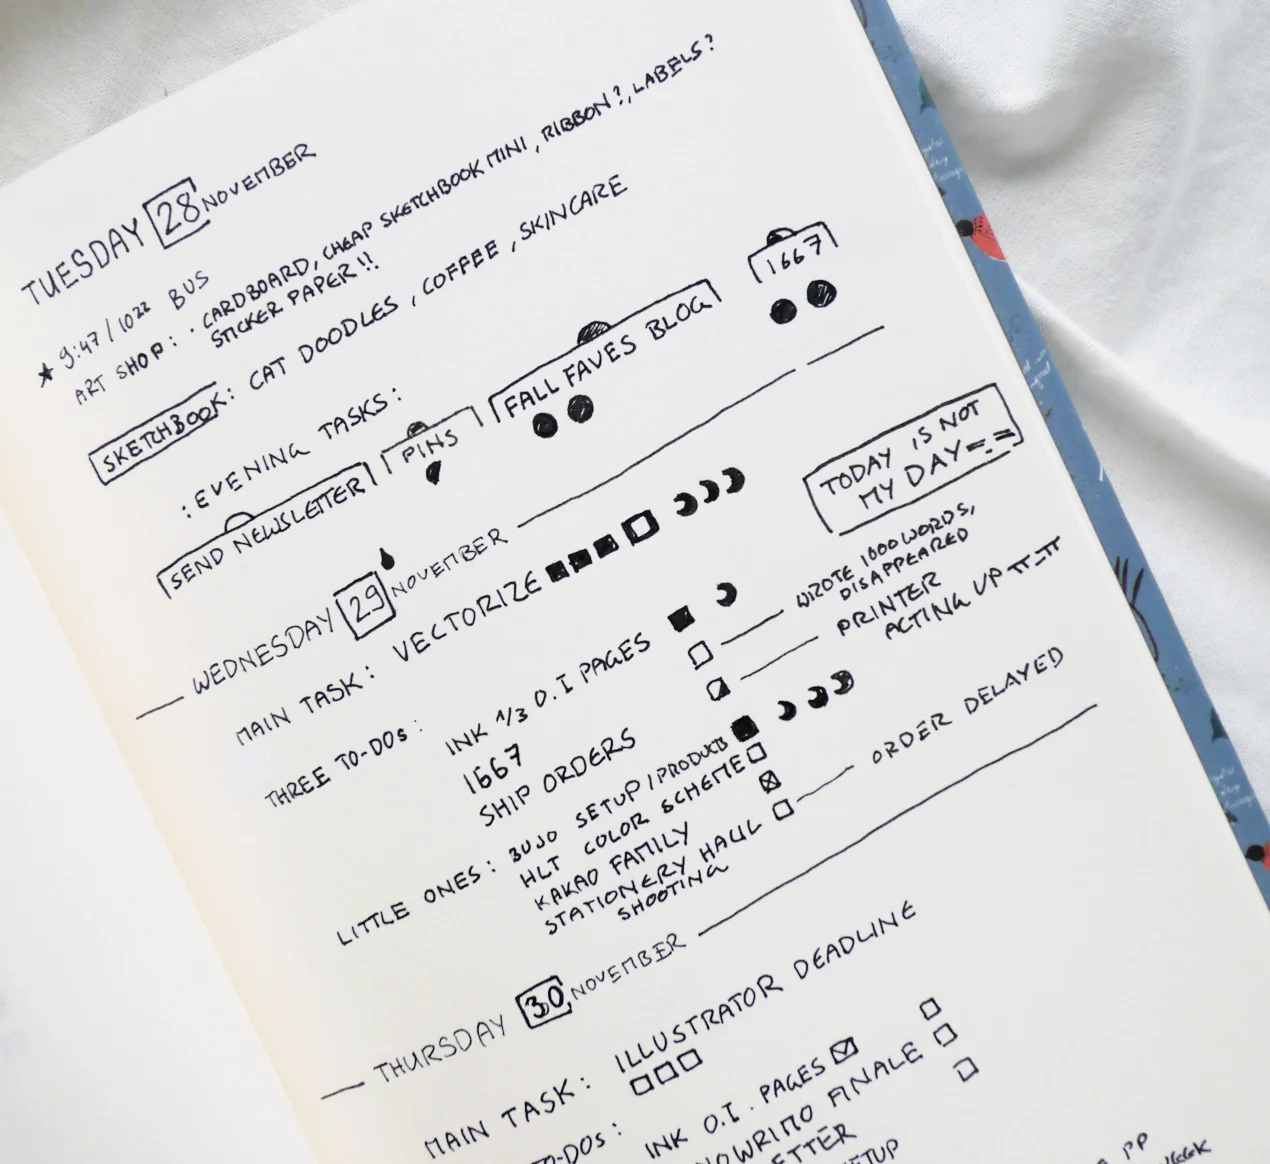 TUESDAY 28 NOVEMBER
★ 9:47 / 10²² BUS
ART SHOP: · CARDBOARD, CHEAP SKETCHBOOK MINI, RIBBON?, LABELS?
STICKER PAPER!!
SKETCHBOOK: CAT DOODLES, COFFEE, SKINCARE
: EVENING TASKS:
SEND NEWSLETTER PINS FALL FAVES BLOG 1667
WEDNESDAY 29 NOVEMBER
TODAY IS NOT
MY DAY =.=
MAIN TASK: VECTORIZE
THREE TO-DOs: INK 1/3 O.I PAGES
1667 WROTE 1000 WORDS,
DISAPPEARED
SHIP ORDERS PRINTER
ACTING UP π_π
LITTLE ONES: BUJO SETUP / PRODUCTS
HLT COLOR SCHEME
KAKAO FAMILY
STATIONERY HAUL ORDER DELAYED
SHOOTING
THURSDAY 30 NOVEMBER
MAIN TASK: ILLUSTRATOR DEADLINE
TO-DOs: INK O.I. PAGES
NOWRIMO FINALE
ETTER
ETUP
PP